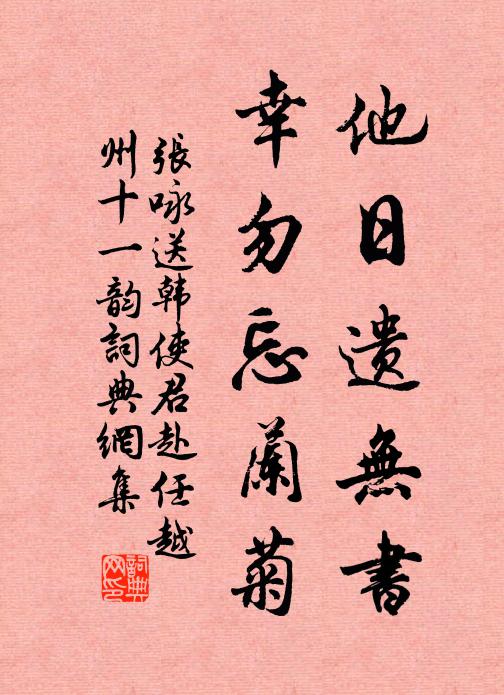 他日遺無書
幸勿忘蘭菊
張咏送韩使君赴任越
州十一韵詞典網集
詞典
网印